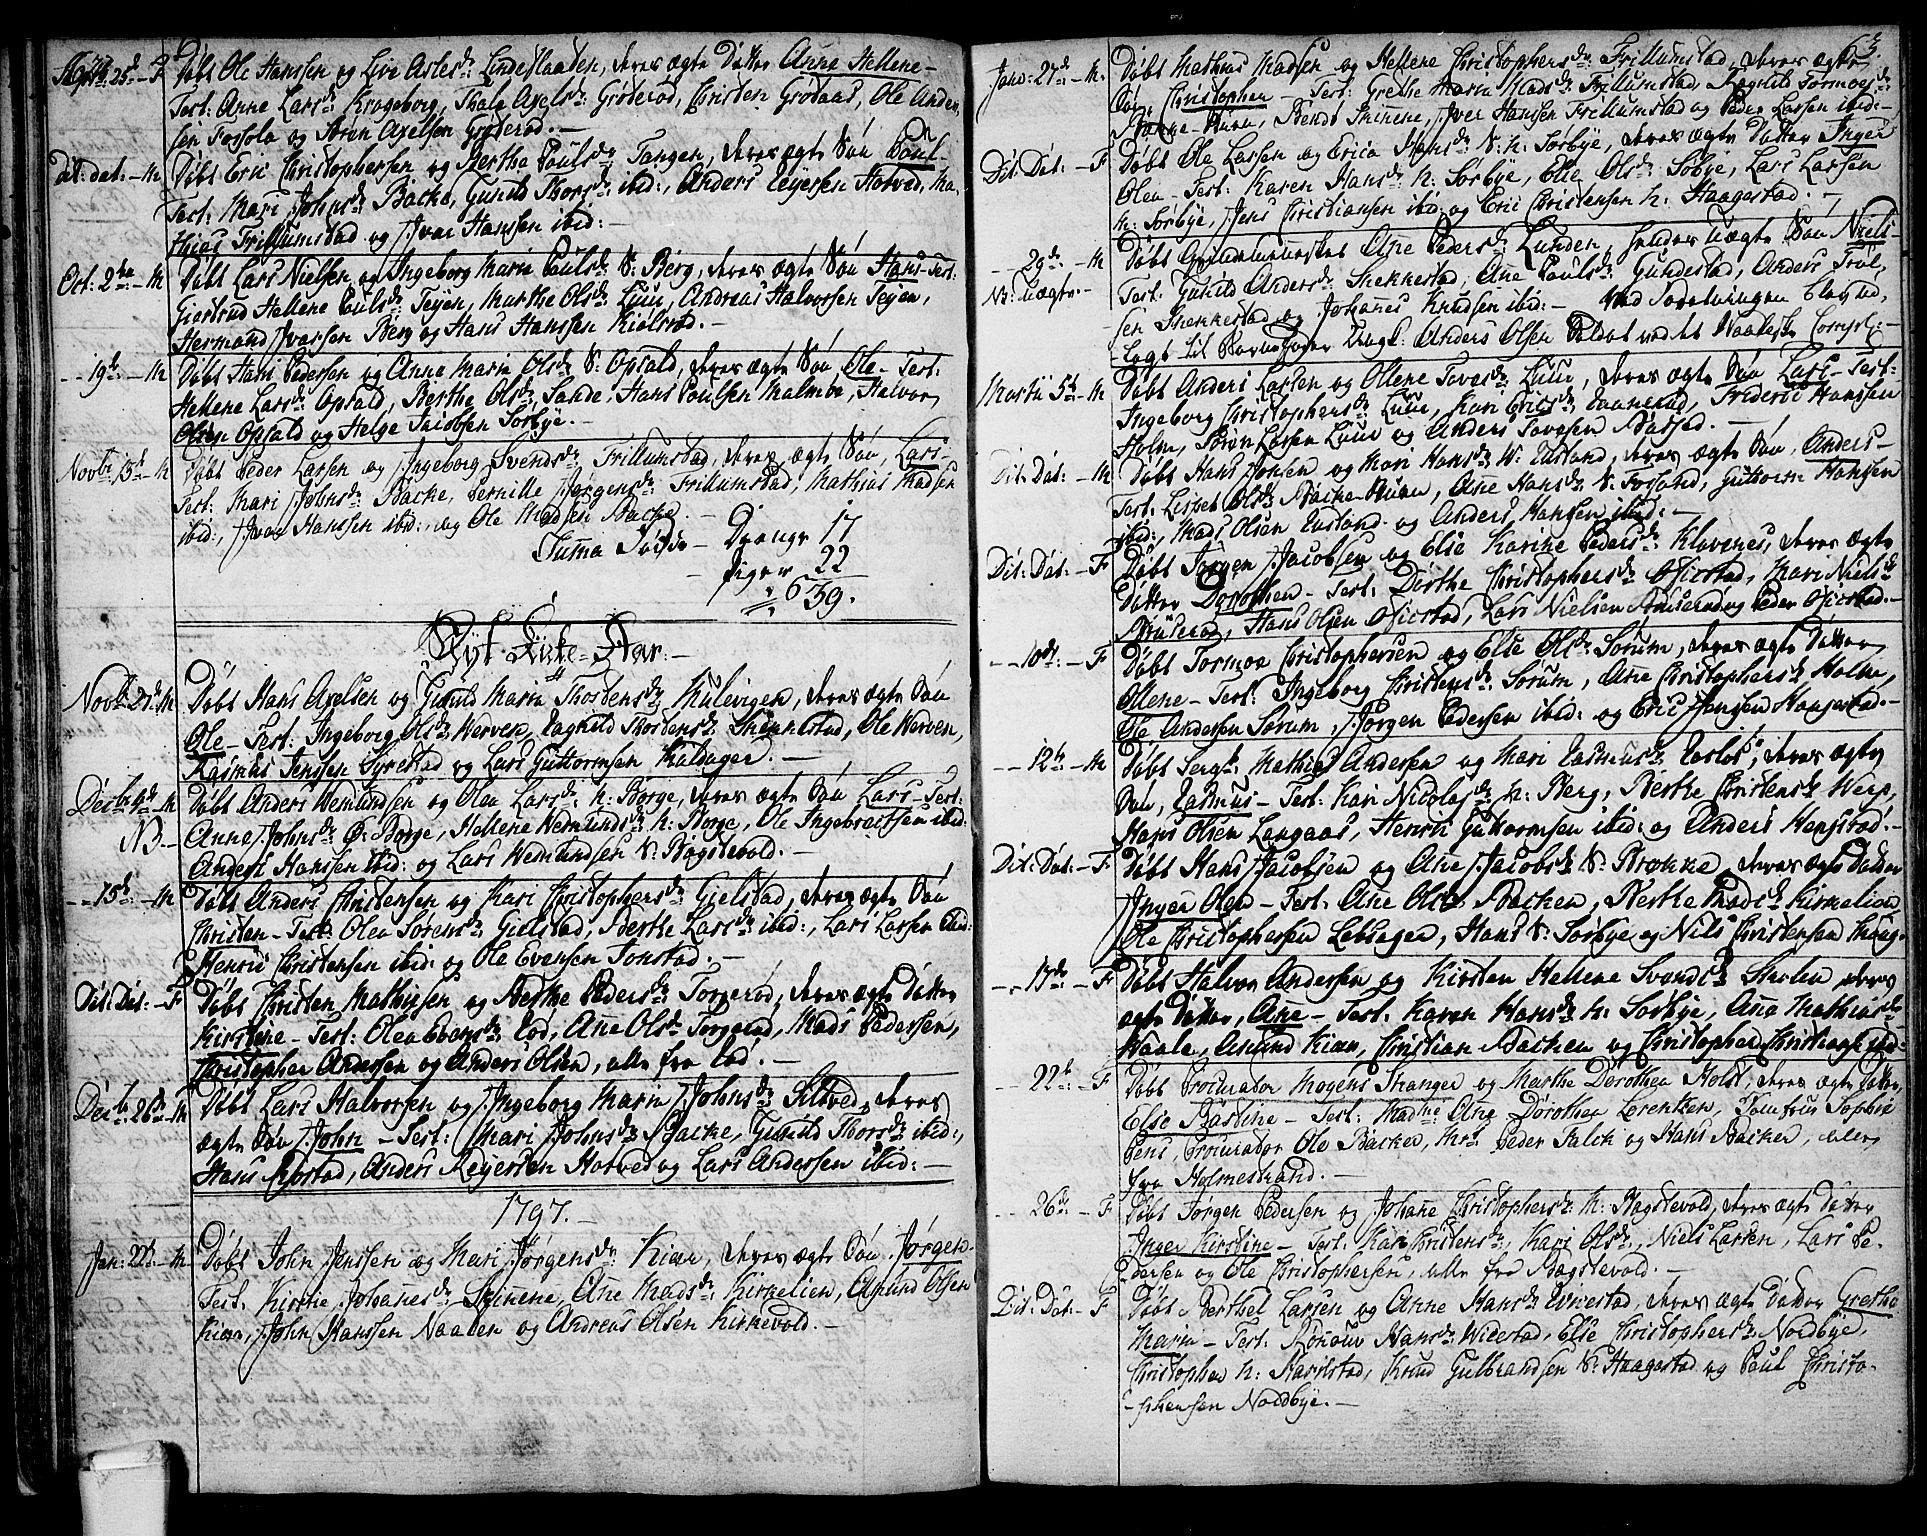 Septb: 25d – F Döbt Ole Hanssen og Live Asles dr: Lindeslaaten, deres ægte Datter Anne Hellene –
Test: Anne Lars dr: Krogeborg, Thale Axels dr: Gröteröd, Christen Grodaas, Ole Ander-
sen Fossola og Aren Axelsen Gröteröd. –
Dit: dat: – M Döbt Eric Christophersen og Berthe Pouls dr: Tangen, deres ægte Sön Poul –
Test: Mari Johns dr: Backe, Gunild Thors dr: ibid:, Anders Reyersen Hotved, Ma-
thias Trillumstad og Iver Hanssen ibid:
Oct: 2den – M Döbt Lars Nielsen og Ingeborg Maria Pouls dr: S: Berg, deres ægte Sön Hans – Test:
Giertrud Hellene Pouls dr: Teyen, Marthe Ols dr: Luur, Andreas Halvorsen Teyen,
Hermand Iversen Berg og Hans Hanssen Kiölsröd. –
– – 19d: – M Döbt Hans Pedersen og Anne Maria Ols dr: S: Opsald, deres ægte Sön Ole – Test:
Hellene Lars dr: Opsald, Berthe Ols dr: Sande, Hans Poulsen Malmöe, Halvor
Olsen Opsald og Helge Jacobsen Sörbye. –
Novbr: 13d – M Döbt Peder Larsen og Ingeborg Svends dr: Trillumstad, deres ægte Sön, Lars –
Test: Mari Johns dr: Backe, Pernille Jörgens dr: Trillumstad, Mathias Madsen
ibid:, Iver Hanssen ibid: og Ole Madsen Backe. –
Suma Döbte – Drenge 17
– Piger 22
39.
Nyt Kirke-Aar: –
Novbr: 27d M Döbt Hans Axelsen og Gunild Maria Thorstens dr: Mulevigen, deres ægte Sön
Ole – Test: Ingeborg Ols dr: Werven, Ragnild Thorstens dr: Skenelstad, Ole Werven,
Rasmus Jenssen Syrestad og Lars Guttormsen Kaldager. –
Decbr: 4d – M Döbt Anders Wemundsen og Olea Lars dr: N: Borge, deres ægte Sön Lars – Test:
NB – Anne Johns dr: Ö: Borge, Hellene Wemunds dr: N: Borge, Ole Ingebretsen ibid:
Anders Hanssen ibid: og Lars Wemundsen S: Bogstevold. –
– – 15d – M Döbt Anders Christensen og Kari Christophers dr: Gielstad, deres ægte Sön
Christen – Test: Olea Sörens dr: Gielstad, Berthe Lars dr: ibid:, Lars Larsen ibid:
Henric Christensen ibid: og Ole Evensen Tonstad. –
Dit: Dat: – F Döbt Christen Mathissen og Berthe Peders dr: Torgeröd, deres ægte Datter
Kirstine – Test: Olea Evens dr: Röd, Ane Ols dr: Torgeröd, Mads Pedersen,
Christopher Anderssen og Anders Olsen, alle fra Röd. –
Decbr: 26d: M Döbt Lars Halvorsen og Ingeborg Maria Johns dr: Siltved, deres
ægte Sön John – Test: Mari Johns dr: Backe, Gunild Thors dr: ibid:,
Hans Röstad, Anders Reyersen Hotved og Lars Andersen ibid: –
1797. –
Jan: 22d: – M Döbt John Jenssen og Mari Jörgens dr: Kiær, deres ægte Sön Jörgen –
Test: Kirstie Johanes dr: Skinene, Ane Mads dr: Kirkelien, Asmund Olsen
Kiær, John Hanssen Naalen og Andreas Olsen Kirkevold. –
63.
Janr: 27d – M. Döbt Mathias Madsen og Hellene Christophers dr: Trillumstad, deres ægte
Sön Christopher – Test: Grethe Maria Mads dr: Trillumstad, Ragnild Tormoes dr:
Backe-Huen, Bendt Skinene, Iver Hansen Trillumstad og Peder Larsen ibid: –
Dit: Dat: – F Döbt Ole Larsen og Erica Hans dr: N: Sörbye, deres ægte Datter Inger
Olea – Test: Karen Hans dr: N: Sörbye, Elie Ols dr: Söbye, Lars Larsen
N: Sörbye, Jens Christiansen ibid: og Eric Christensen N: Haagestad. –
– – 29de – M Döbt Qvindemennesket Ane Peders dr: Lunden, hendes Uægte Sön Niels –
NB: Uægte – Test: Gunild Anders dr: Skekkestad, Ane Pouls dr: Gundestad, Anders Trul-
sen Skekkestad og Johanes Knudsen ibid: –
– lagt til Barne Fader Anders Olsen Soldat ved det Waaleske Comp: –
Martii 5t – M Döbt Anders Larsen og Ollene Toves dr: Luur, deres ægte Sön Lars – Test:
Ingeborg Christophers dr: Luur, Kari Erics dr: Raaneröd, Frideric Hanssen
Holm, Sören Larsen Luur og Anders Tovesen Bassöd. –
Dit: Dat: – M Döbt Hans Jonsen og Mari Hans dr: W: Rusland, deres ægte Sön, Anders –
Test: Lisbet Ols dr: Backe-Huen, Ane Hans dr: S: Fosland, Guttorm Hansen
ibid:, Mads Olsen Rusland og Anders Hansen ibid: –
Dit: Dat: – F Döbt Jörgen Jacobsen og Else Karine Peders dr: Klavenes, deres ægte
Datter Dorothea – Test: Dorthe Christophers dr: Ofiestad, Mari Niels dr:
Bruseröd, Hans Olsen Ofiestad, Lars Nielsen Bruseröd og Peder Ofiestad. –
– – 10de: – F Döbt Tormoe Christophersen og Else Ols dr: Sörum, deres ægte Datter
Ollene – Test: Ingeborg Christens dr: Sorum, Ane Christophers dr: Holm,
Ole Andersen Sorum, Jörgen Pedersen ibid: og Eric Jensen Haagestad. –
– – 12te – M Döbt Sergt: Mathias Andersen og Mari Rasmus dr: deres ægte
Sön, Rasmus – Test: Kari Nicolas dr: N: Berg, Berthe Christens dr: Werp,
Hans Olsen Langaas, Henric Guttormsen ibid: og Anders Hengstad. –
Dit: Dat: – F Döbt Hans Jacobsen og Ane Jacobs dr: S: Brække, deres ægte Datter
Inger Olea – Test: Ane Ols dr: Backen, Berthe Mads dr: Kirkelien
Ole Christophersen Lebsager, Hans S: Sörbye og Niels Christensen
– – 17de – F Döbt Halvor Andersen og Kirsten Hellene Svends dr: Stulen, deres
ægte Datter, Ane – Test: Karen Hans dr: N: Sorbye, Ane Mathias dr:
Waale, Asmund Kiær, Christian Backen og Christopher Christians ibid:
– – 22t: – F Döbt Procurator Mogens Stranger og Marthe Dorothea Holst, deres ægte Datter
Else Bastine – Test: Madme Ane Dorothea Lorentzen, Jomfrue Sophie
Bens, Procurator Ole Backer, Hr: Peder Falck og Hans Backer, alle
fra Holmestrand. –
– – 26de – F Döbt Jörgen Pedersen og Johane Christophers dr: N: Bogstevold, deres ægte Datter
Inger Kirstine – Test: Kari Christens dr:, Kari Ols dr:, Niels Larsen, Lars Pe-
dersen og Ole Christophersen, alle fra Bogstevold. –
Dit: Dat: – F Döbt Berthel Larsen og Anne Hans dr: Winestad, deres ægte Datter Grethe
Maria – Test: Hans dr: Winestad, Else Christophers dr: Nordbye,
Christopher N: Harilstad, Knud Gulbrandsen S: Haagestad og Poul Christo-
– phersen Nordbye. –